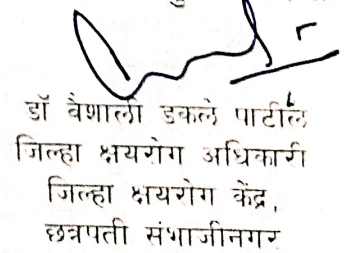 डॉ वैशाली डकले पाटील
जिल्हा क्षयरोग अधिकारी
जिल्हा क्षयरोग केंद्र,
छत्रपती संभाजीनगर